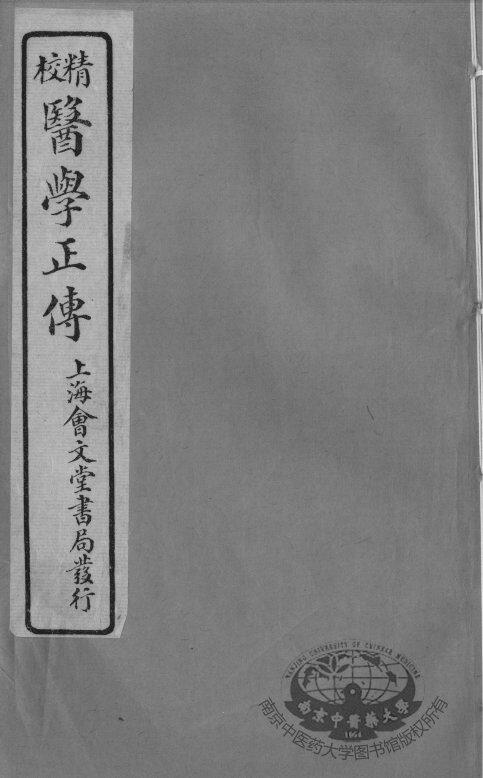 精校
醫學正傳
上海會文堂書局發行
NANJING UNIVERSITY OF CHINESE MEDICINE
南京中醫藥大學
1954
南京中医药大学图书馆版权所有